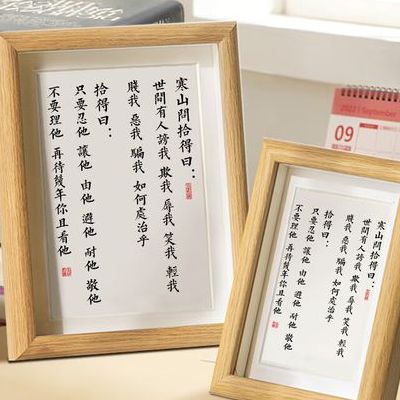 寒山問拾得曰：
世間有人謗我 欺我 辱我 笑我 輕我
賤我 惡我 騙我 如何處治乎
拾得曰：
只要忍他 讓他 由他 避他 耐他 敬他
不要理他 再待幾年你且看他
September
09
寒山問拾得曰：
世間有人謗我 欺我 辱我 笑我 輕我
賤我 惡我 騙我 如何處治乎
拾得曰：
只要忍他 讓他 由他 避他 耐他 敬他
不要理他 再待幾年你且看他